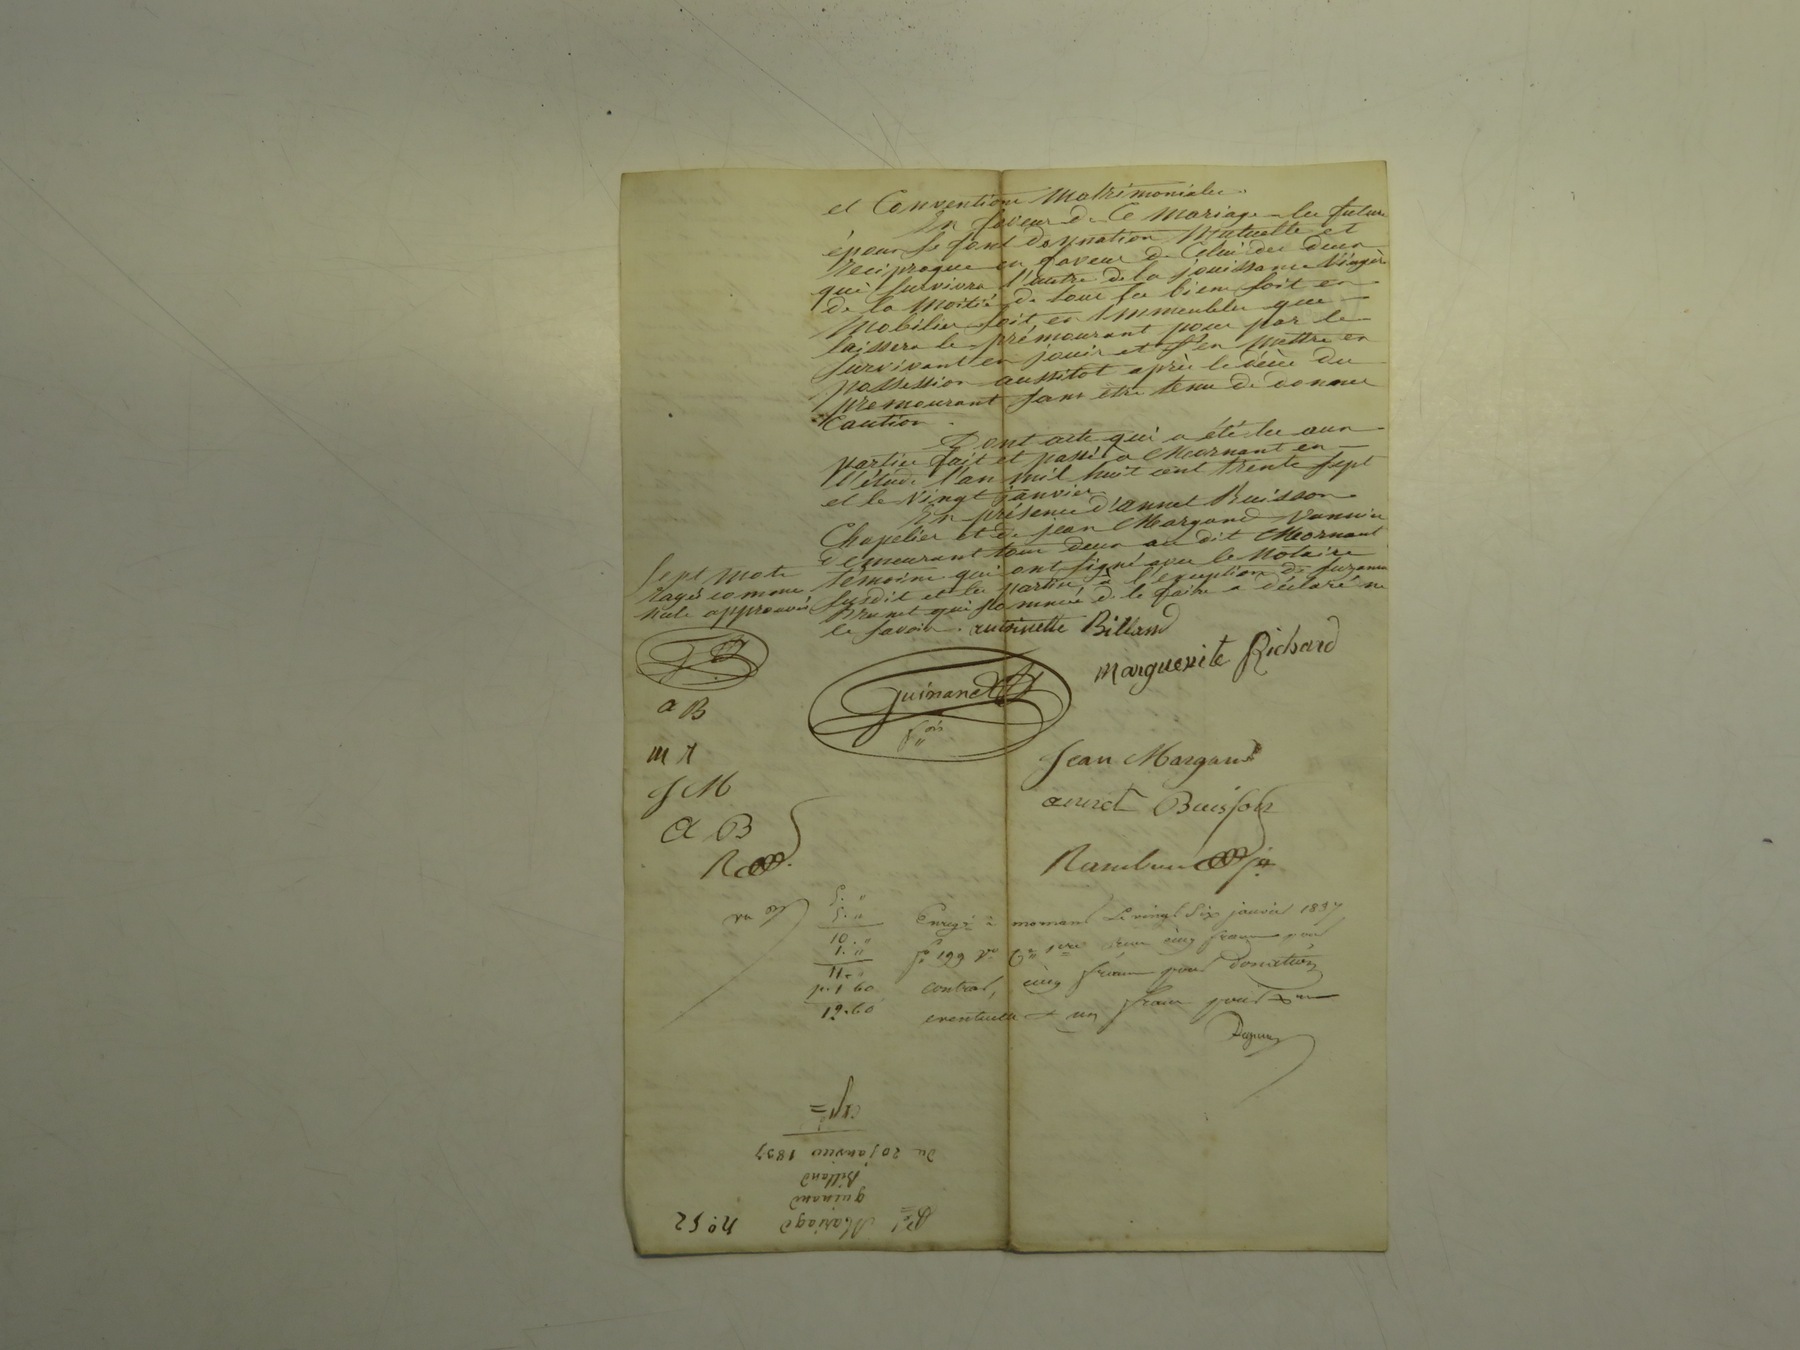 et Conventions Matrimoniales.
En faveur de Ce Mariage les futurs
époux se font donnation Mutuelle et
Reciproque en faveur de Celui des deux
qui Survivra l'autre de la jouissance Viagère
de la Moitié de tous les biens soit en
Mobilier soit en Immeubles que
laissera le prémourant pour par le
Survivant en jouir et s'en mettre en
possession aussitot après le décès du
premourant sans être tenu de donner
Caution.
Dont acte qui a été lu aux
parties fait et passé à Mornant en
l'étude l'an mil huit cent trente sept
et le Vingt janvier
En présence d'annet Buisson
Chapelier et de jean Margand Vannier
demeurant tous deux au dit Mornant
témoins qui ont signé avec le Notaire
susdit et les parties à l'exception de Suzanne
Brunet qui sommée de le faire a déclaré ne
le savoir.
Sept mots
rayés comme
nuls approuvés
antoinette Billand
Marguerite Richard
Guinand
fois
a B
m R
J M
A B
R
Jean Margand
annet Buisson
5. "
5. "
10. "
1. "
11. "
1.60
12.60
Enregé à mornant Le vingt six janvier 1837
fo 199 Vo Ce 1re reçu cinq francs pour
contrat, cinq francs pour donation
eventuelle et un franc pour
No 52
Mariage
guinand
Billand
du 20 janvier 1837